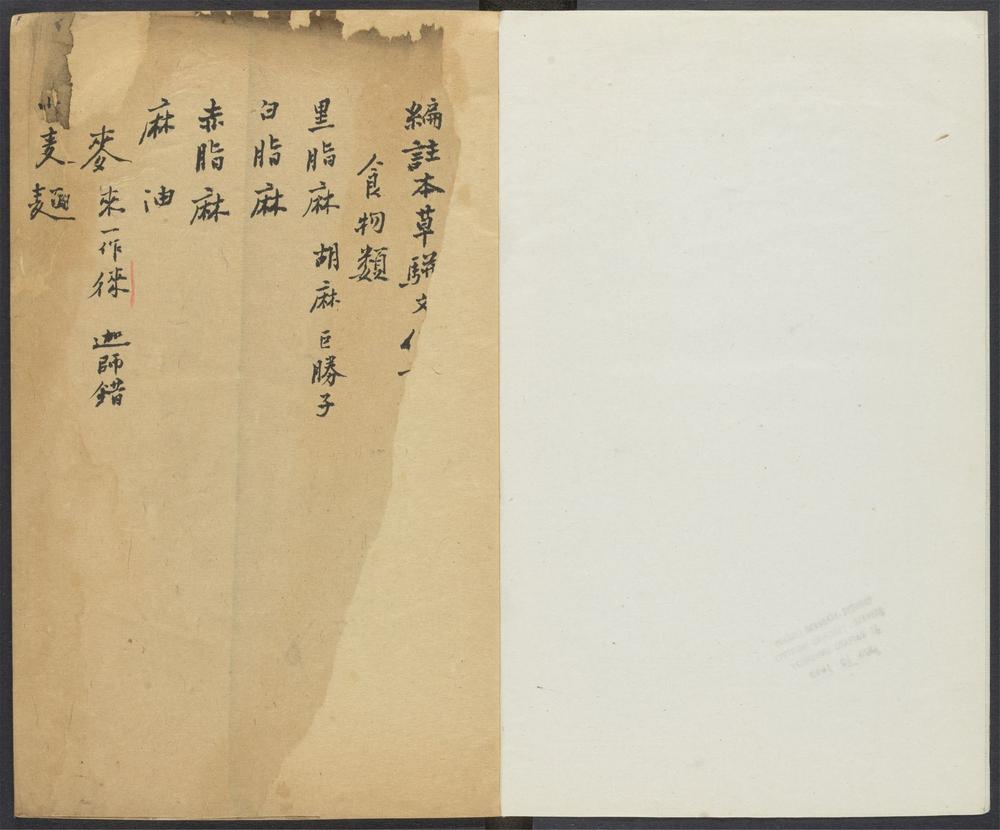 編註本草駢文
食物類
黒脂麻 胡麻 巨勝子
白脂麻
赤脂麻
麻油
麥 来一作徠 迦師錯
麦麺